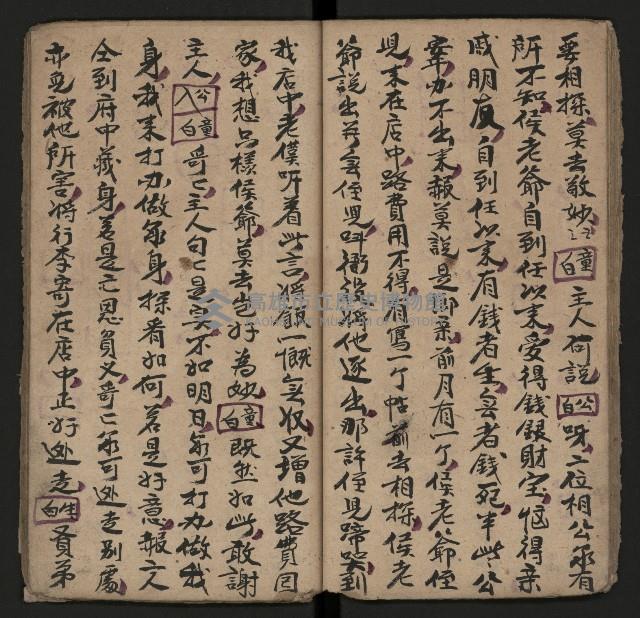 要相探莫去敢妙々々 童白 主人何說 公白 呀二位相公承有
所不知侯老爺自到任以來愛得錢銀財宝惱得亲
戚朋友自到任以來有錢者生無者錢死半些公
案办不出来報莫說是別亲前月有一个侯老爺侄
児来在店中路費用不得有寫一个帖前去相探侯老
爺說出並無侄児叫衙役將他逐出那許侄児啼哭到
我店中老僕听着此言將銀一慨無收又增他路費回
家我想只樣侯爺莫去也好為妙 童白 既然如此敢謝
主人 公入 童白 哥亡主人句亡是实不如明日你可打办做我
身我来打办做你身探看如何若是好意報亡
仝到府中藏身若是亡恩負义哥亡你可逃走别處
亦免被他所害將行李寄在店中正好逃走 生白 贤弟
高雄市立歷史博物館
KAOHSIUNG MUSEUM OF HISTORY